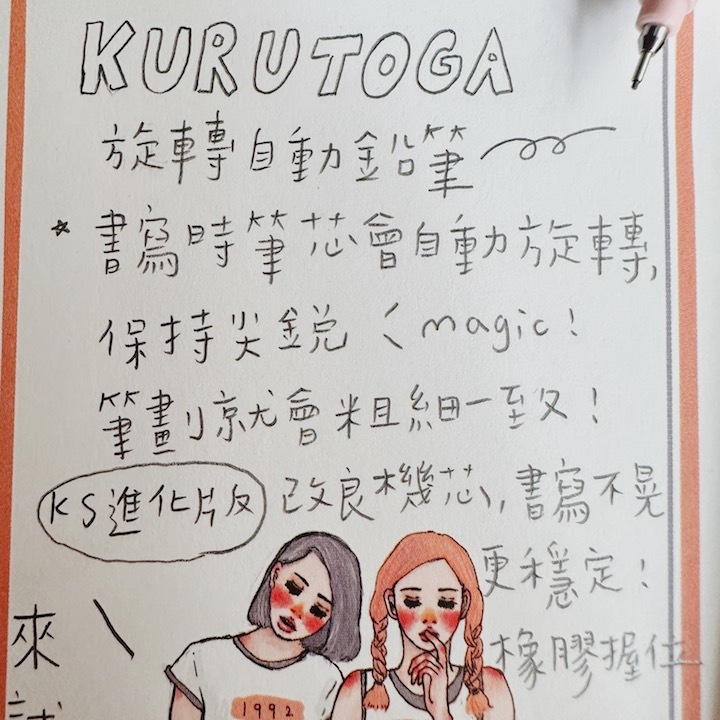 KURUTOGA
旋轉自動鉛筆
*書寫時筆芯會自動旋轉,
保持尖銳く magic!
筆劃就會粗細一致!
KS進化版 改良機芯,書寫不晃
更穩定!
橡膠握位
來
試
1992